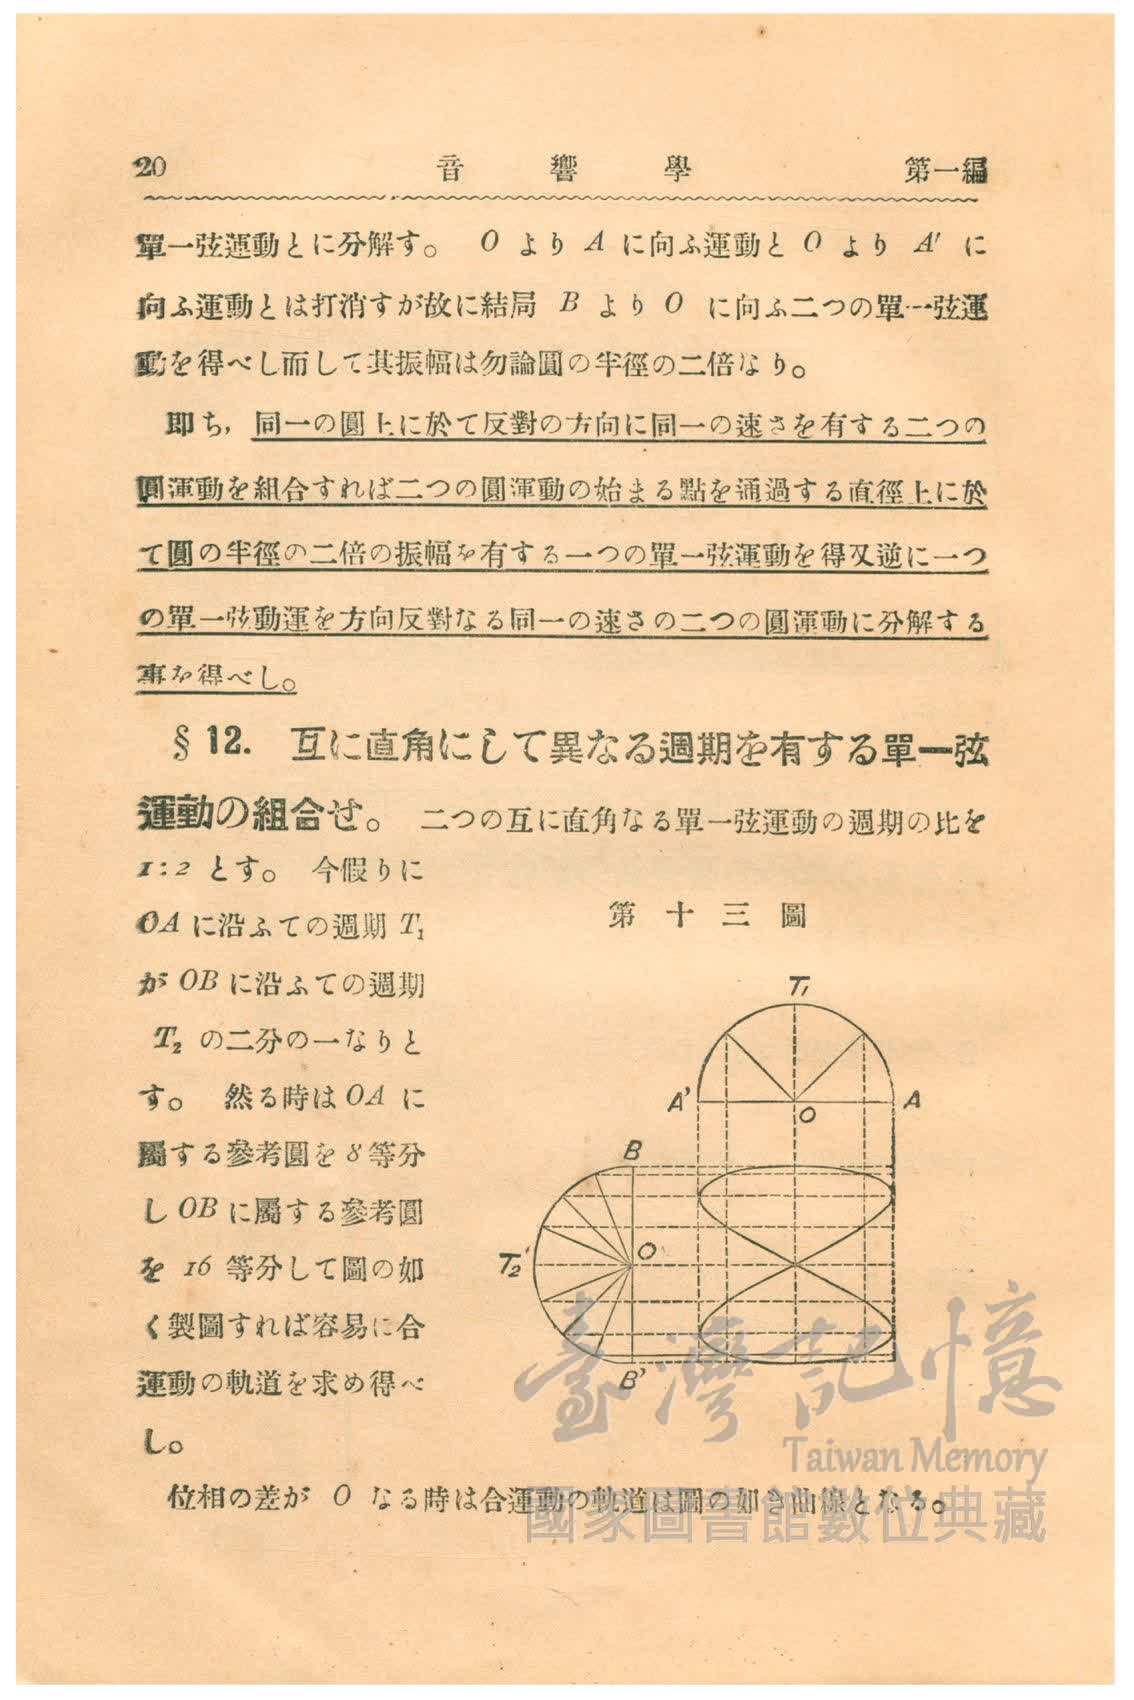 20 音響學 第一編
單一弦運動とに分解す。 O より A に向ふ運動と O より A' に
向ふ運動とは打消すが故に結局 B より O に向ふ二つの單一弦運
動を得べし而して其振幅は勿論圓の半徑の二倍なり。
卽ち，同一の圓上に於て反對の方向に同一の速さを有する二つの
圓運動を組合すれば二つの圓運動の始まる點を通過する直徑上に於
て圓の半徑の二倍の振幅を有する一つの單一弦運動を得又逆に一つ
の單一弦動運を方向反對なる同一の速さの二つの圓運動に分解する
事を得べし。
§ 12. 互に直角にして異なる週期を有する單一弦
運動の組合せ。 二つの互に直角なる單一弦運動の週期の比を
1:2 とす。 今假りに
OA に沿ふての週期 T₁
が OB に沿ふての週期
T₂ の二分の一なりと
す。 然る時は OA に
屬する參考圓を 8 等分
し OB に屬する參考圓
を 16 等分して圖の如
く製圖すれば容易に合
運動の軌道を求め得べ
し。
第十三圖
T₁
A'
O
A
B
T₂
O
B'
位相の差が O なる時は合運動の軌道は圖の如き曲線となる。
臺灣記憶
Taiwan Memory
國家圖書館數位典藏